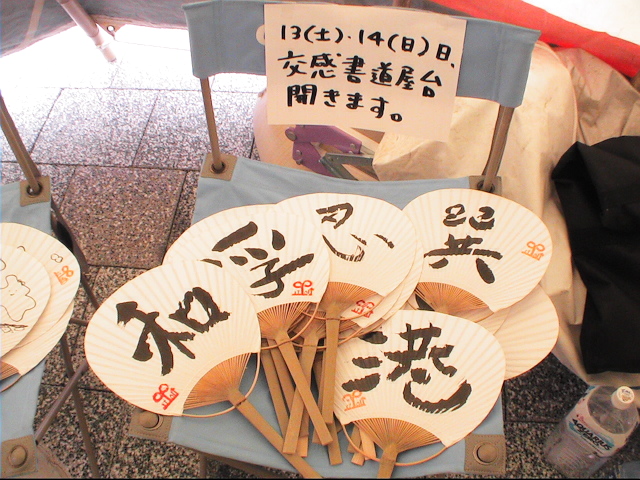 13(土)・14(日)日、
交感書道屋台
開きます。
和
浮
忍
巽
港
AQUARIUS